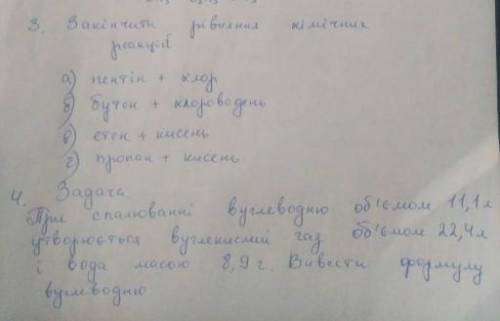 3. Закінчити рівняння хімічних
реакцій
а) пентін + хлор
б) бутен + хлороводень
в) етен + кисень
г) пропан + кисень
4. Задача.
При спалюванні вуглеводню об'ємом 11,1л
утворюється вуглекислий газ об'ємом 22,4л
і вода масою 8,9г. Вивести формулу
вуглеводню